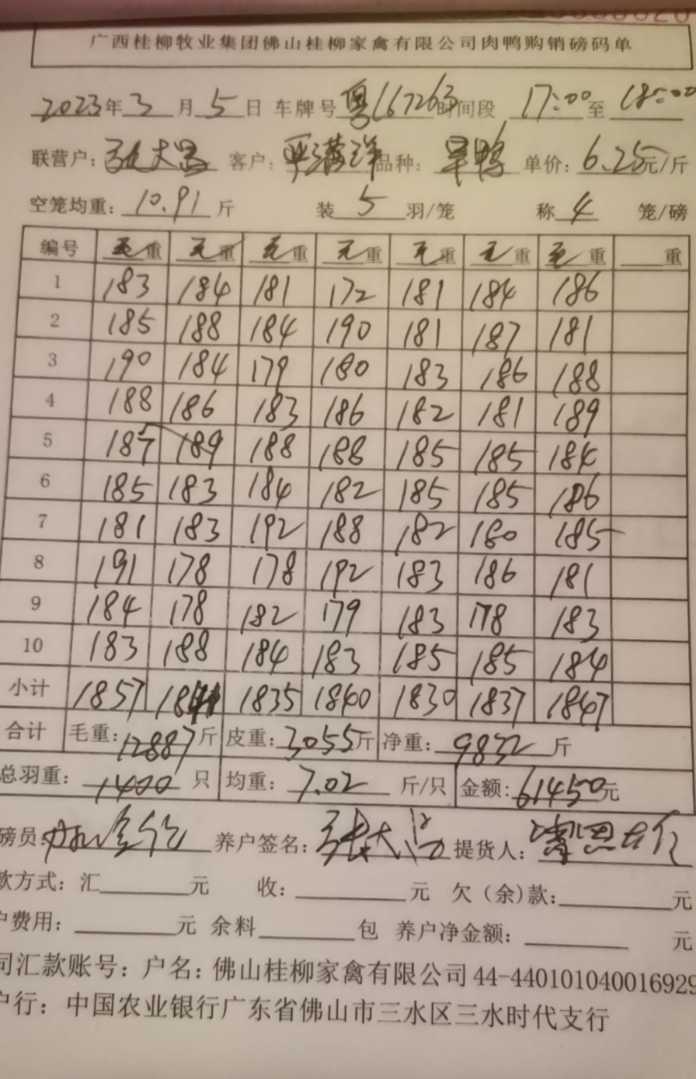 广西桂柳牧业集团佛山桂柳家禽有限公司肉鸭购销磅码单
2023年3月5日 车牌号 粤167263 时间段 17:00至18:00
联营户: 客户: 品种: 旱鸭 单价: 6.25元/斤
空笼均重: 10.91斤 装5羽/笼 称4笼/磅
编号 毛重 毛重 毛重 毛重 毛重 毛重 毛重 重
1 183 184 181 172 181 184 186
2 185 188 184 190 181 187 181
3 190 184 179 180 183 186 188
4 188 186 183 186 182 181 189
5 187 189 188 188 185 185 184
6 185 183 184 182 185 185 186
7 181 183 192 188 182 180 185
8 191 178 178 192 183 186 181
9 184 178 182 179 183 178 183
10 183 188 184 183 185 185 184
小计 1857 1841 1835 1840 1830 1837 1847
合计 毛重: 12887斤 皮重: 3055斤 净重: 9832斤
总羽重: 1400只 均重: 7.02斤/只 金额: 61450元
磅员: 养户签名: 张大 提货人:
款方式: 汇 元 收: 元 欠(余)款: 元
户费用: 元 余料 包 养户净金额: 元
司汇款账号: 户名: 佛山桂柳家禽有限公司 44-440101040016929
户行: 中国农业银行广东省佛山市三水区三水时代支行